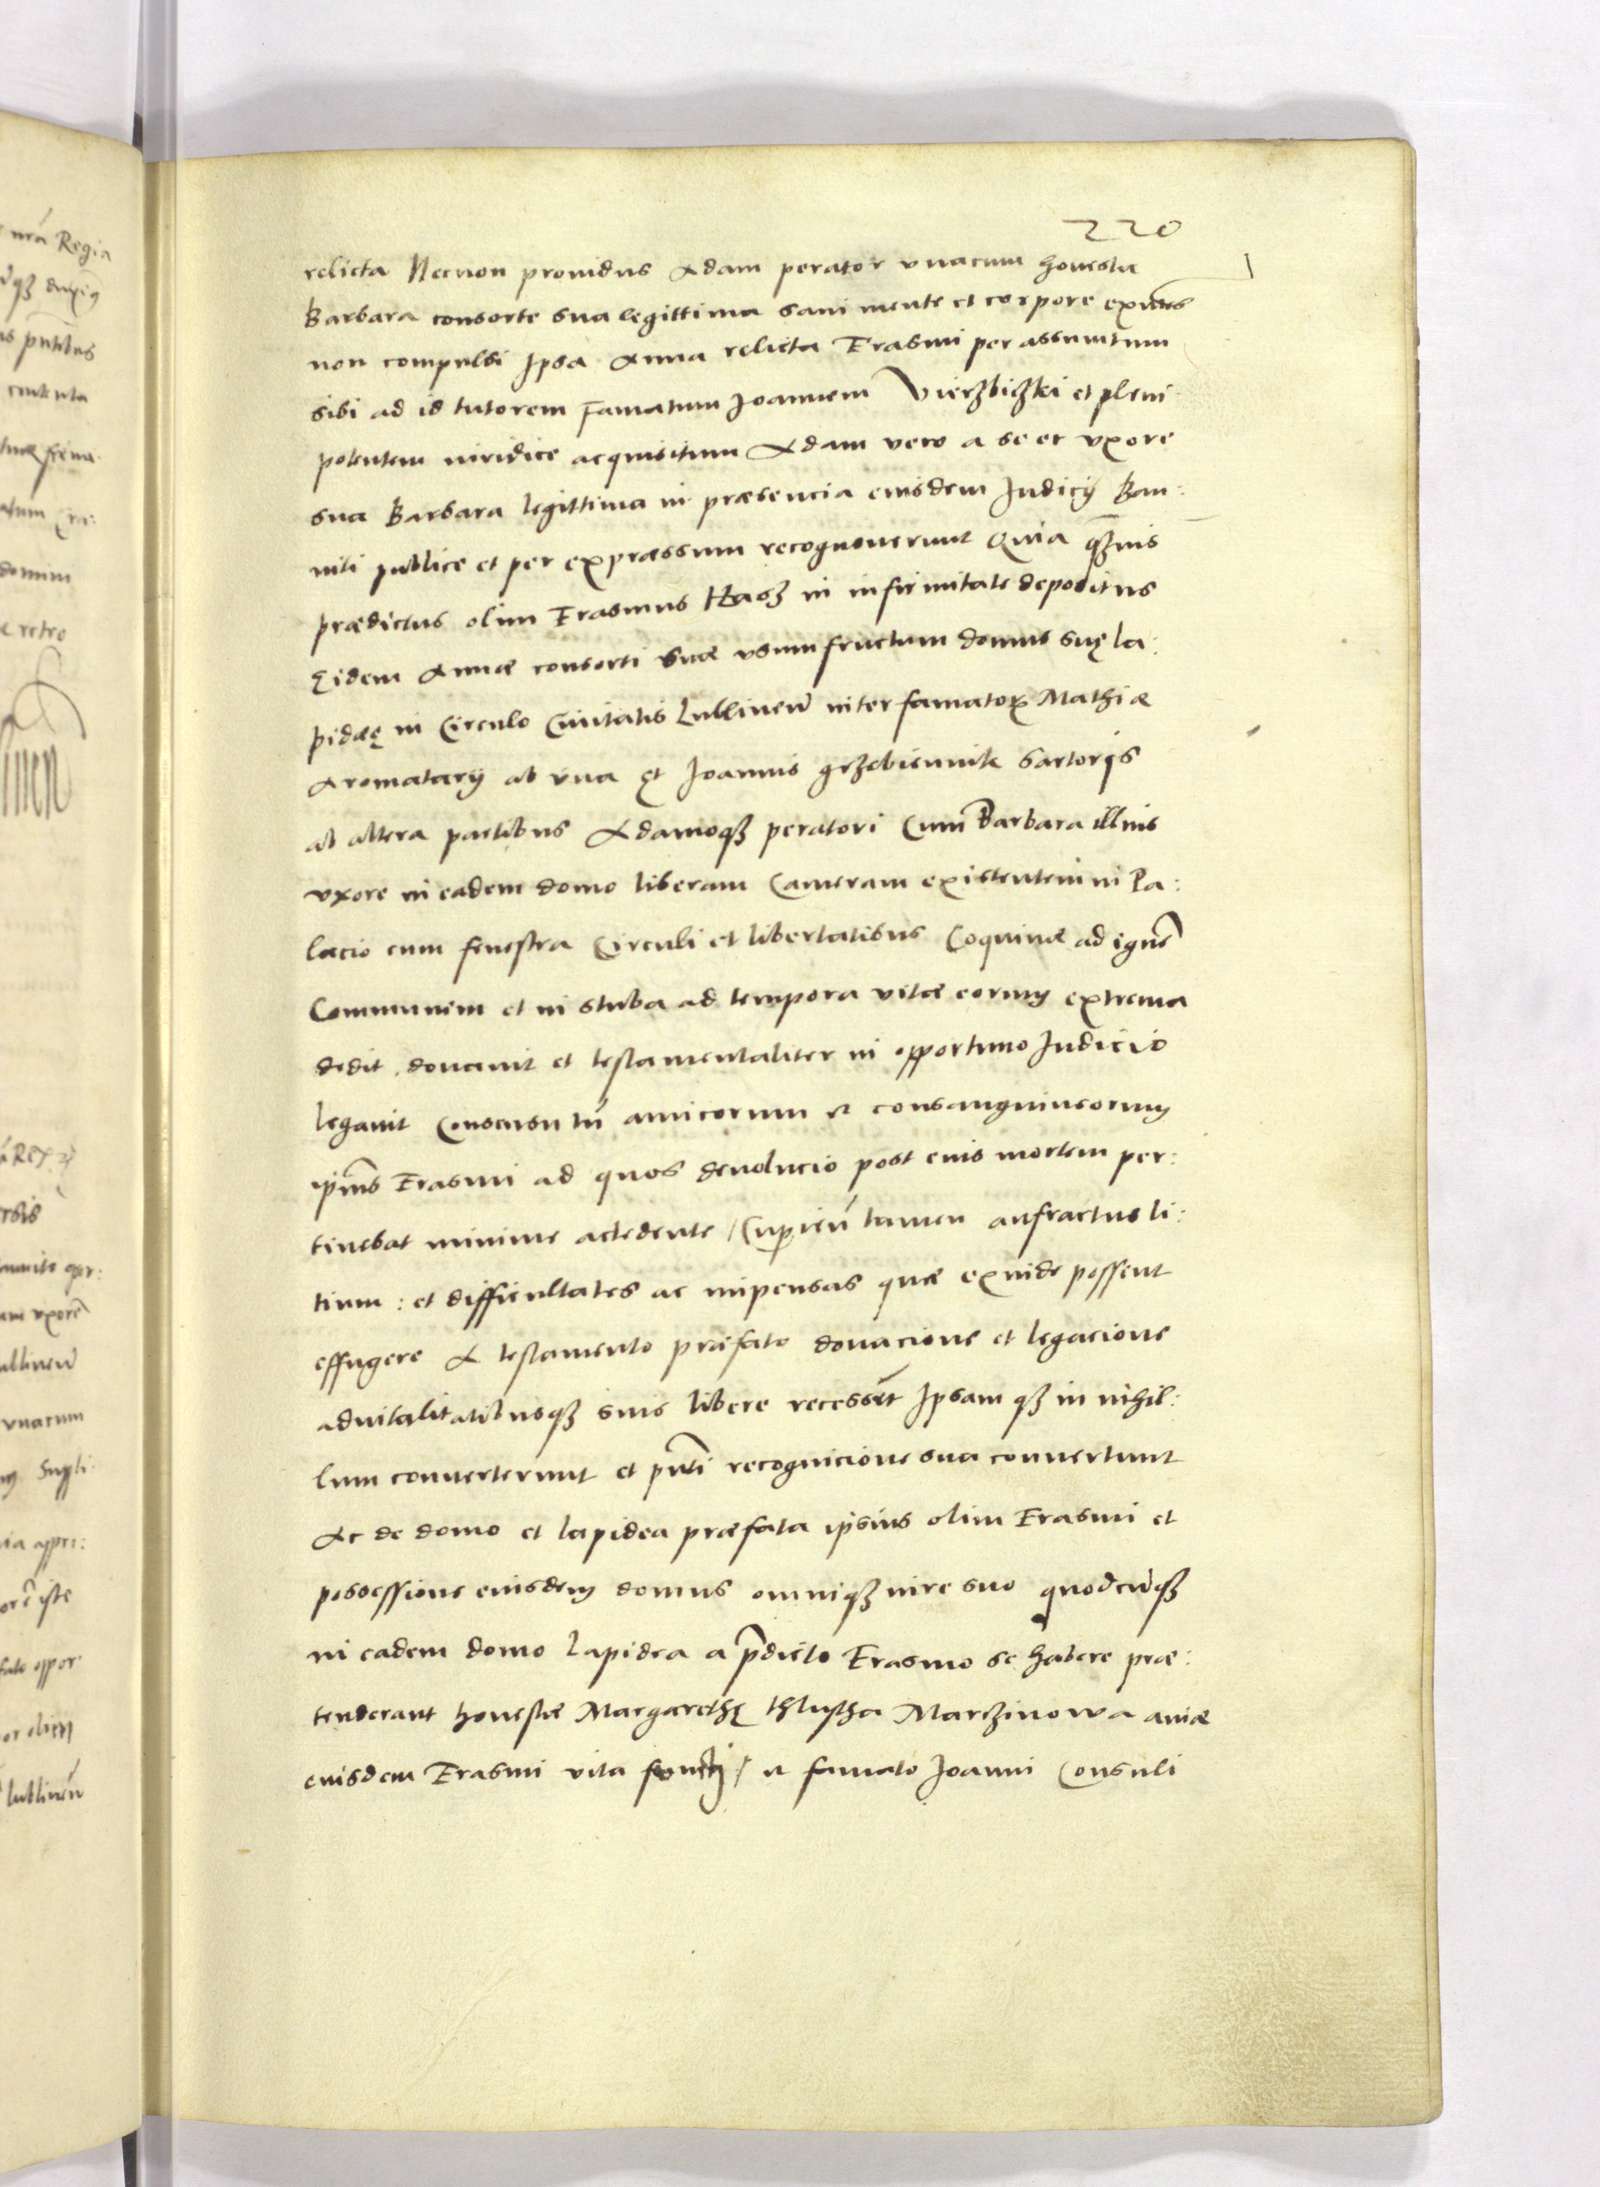 220
relicta Necnon prouidus Adam perator vnacum honesta
Barbara consorte sua legittima sani mente et corpore exntes
non compulsi Ipsa Anna relicta Erasmi per assumtum
sibi ad id tutorem Famatum Joannem Vierzbiczki et pleni
potentem iuridice acquisitum Adam vero a se et vxore
sua Barbara legittima in præsencia eiusdem Judicij Ban:
niti publice et per expræssum recognouerunt Quia qzuis
prædictus olim Erasmus Hasz in infirmitate depositus
Eidem Annæ consorti suæ vsumfructum domus suę la:
pideę in Circulo Ciuitatis Lublineñ inter famatoꝝ Mathiæ
Aromatarij ab vna Et Joannis grzebiennik sartoris
ab altera partibus Adamoqz peratori Cum Barbara illius
vxore in eadem domo liberam Cameram existentem in Pa:
lacio cum fenestra Circuli et libertatibus Coquinæ ad ignē
Communem et in stuba ad tempora vitæ eorum extrema
dedit donauit et testamentaliter in opportuno Judicio
legauit Consensu tñ amicorum et consanguineorum
ipius Erasmi ad quos deuolucio post eius mortem per:
tinebat minime accedente / Cupieñ tamen anfractus li:
tium: et difficultates ac impensas quæ exinde possent
effugere A testamento præfato donacione et legacione
aduitalitatibusqz suis libere recesserūt Ipsam qz in nihil:
lum conuerterunt et pnti recognicione sua conuertunt
Ac de domo et lapidea præfata ipsius olim Erasmi et
possessione eiusdem domus omniqz iure suo quodcūqz
in eadem domo lapidea a pdicto Erasmo se habere præ:
tenderant honestæ Margarethę thlustha Marczinowa auiæ
eiusdem Erasmi vita functi / et famato Joanni Consuli